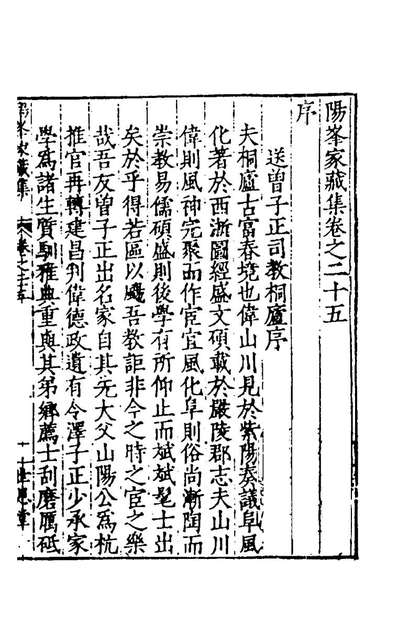 陽峯家藏集卷之二十五
序
送曾子正司教桐廬序
夫桐廬古富春境也偉山川見於紫陽奏議阜風
化著於西浙圖經盛文碩載於嚴陵郡志夫山川
偉則風神完聚而作宦宜風化阜則俗尚漸陶而
崇教易儒碩盛則後學有所仰止而斌斌髦士出
矣於乎得若區以颺吾教詎非今之時之宦之樂
哉吾友曾子正出名家自其先大父山陽公為杭
推官再轉建昌判偉德政遺有令澤子正少承家
學為諸生質馴雅典重與其弟鄉薦士刮磨厲砥
陽峯家藏集 卷之二十五 一